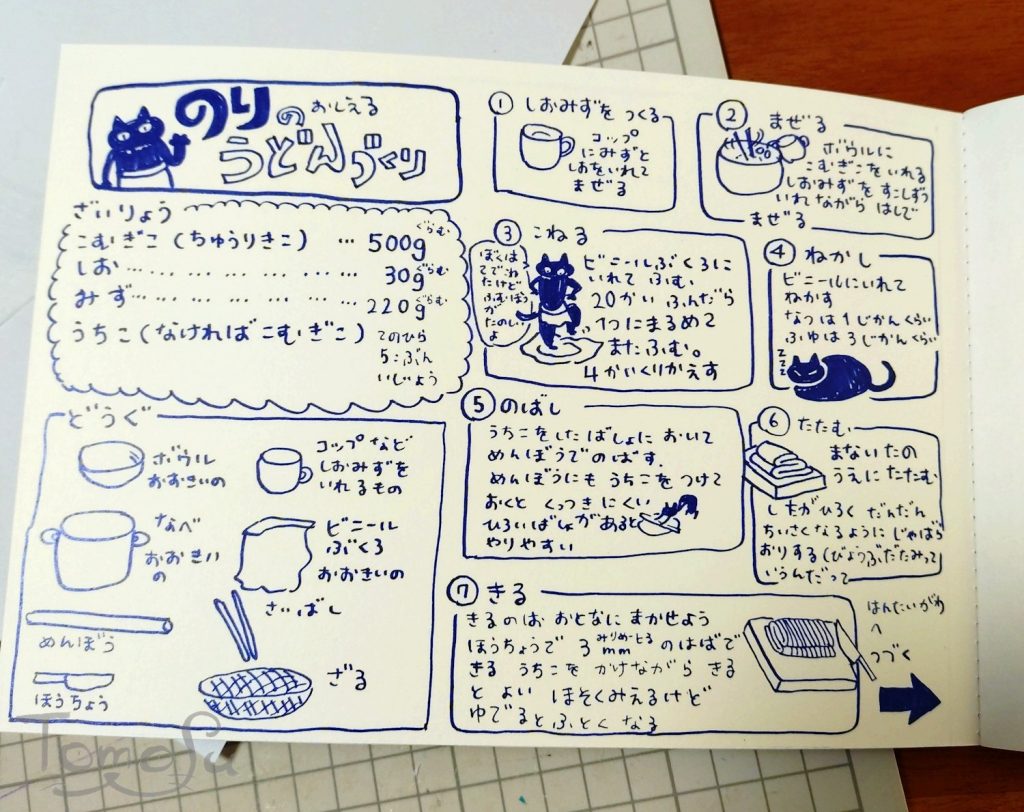 のりの おしえる
うどんづくり
ざいりょう
こむぎこ(ちゅうりきこ) … 500g ぐらむ
しお … … … … … … 30g ぐらむ
みず … … … … … … 220g ぐらむ
うちこ(なければこむぎこ) てのひら
5こぶん
いじょう
どうぐ
ボウル
おおきいの
コップなど
しおみずを
いれるもの
なべ
おおきい
の
ビニール
ぶくろ
おおきいの
めんぼう
さいばし
ほうちょう
ざる
① しおみずを つくる
コップ
にみずと
しおをいれて
まぜる
② まぜる
ボウルに
こむぎこをいれる
しおみずを すこしずつ
いれながら はしで
まぜる
③ こねる
ぼくは
てでこね
たけど
ふむほう
が
たのしい
よ
ビニールぶくろに
いれて ふむ
20かい ふんだら
1つにまるめて
またふむ。
4かいくりかえす
④ ねかし
ビニールにいれて
ねかす
なつは1じかんくらい
ふゆは3じかんくらい
zzz
⑤ のばし
うちこをしたばしょに おいて
めんぼうでのばす.
めんぼうにも うちこを つけて
おくと くっつきにくい
ひろいばしょがあると
やりやすい
⑥ たたむ
まないたの
うえに たたむ
したがひろく だんだん
ちいさくなるように じゃばら
おりする(びょうぶだたみって
いうんだって
⑦ きる
きるのは おとなに まかせよう
ほうちょうで 3mm みりめーとる のはばで
きる うちこを かけながら きる
と よい ほそくみえるけど
ゆでると ふとく なる
はんたいがわ
へ
つづく
Tomosa